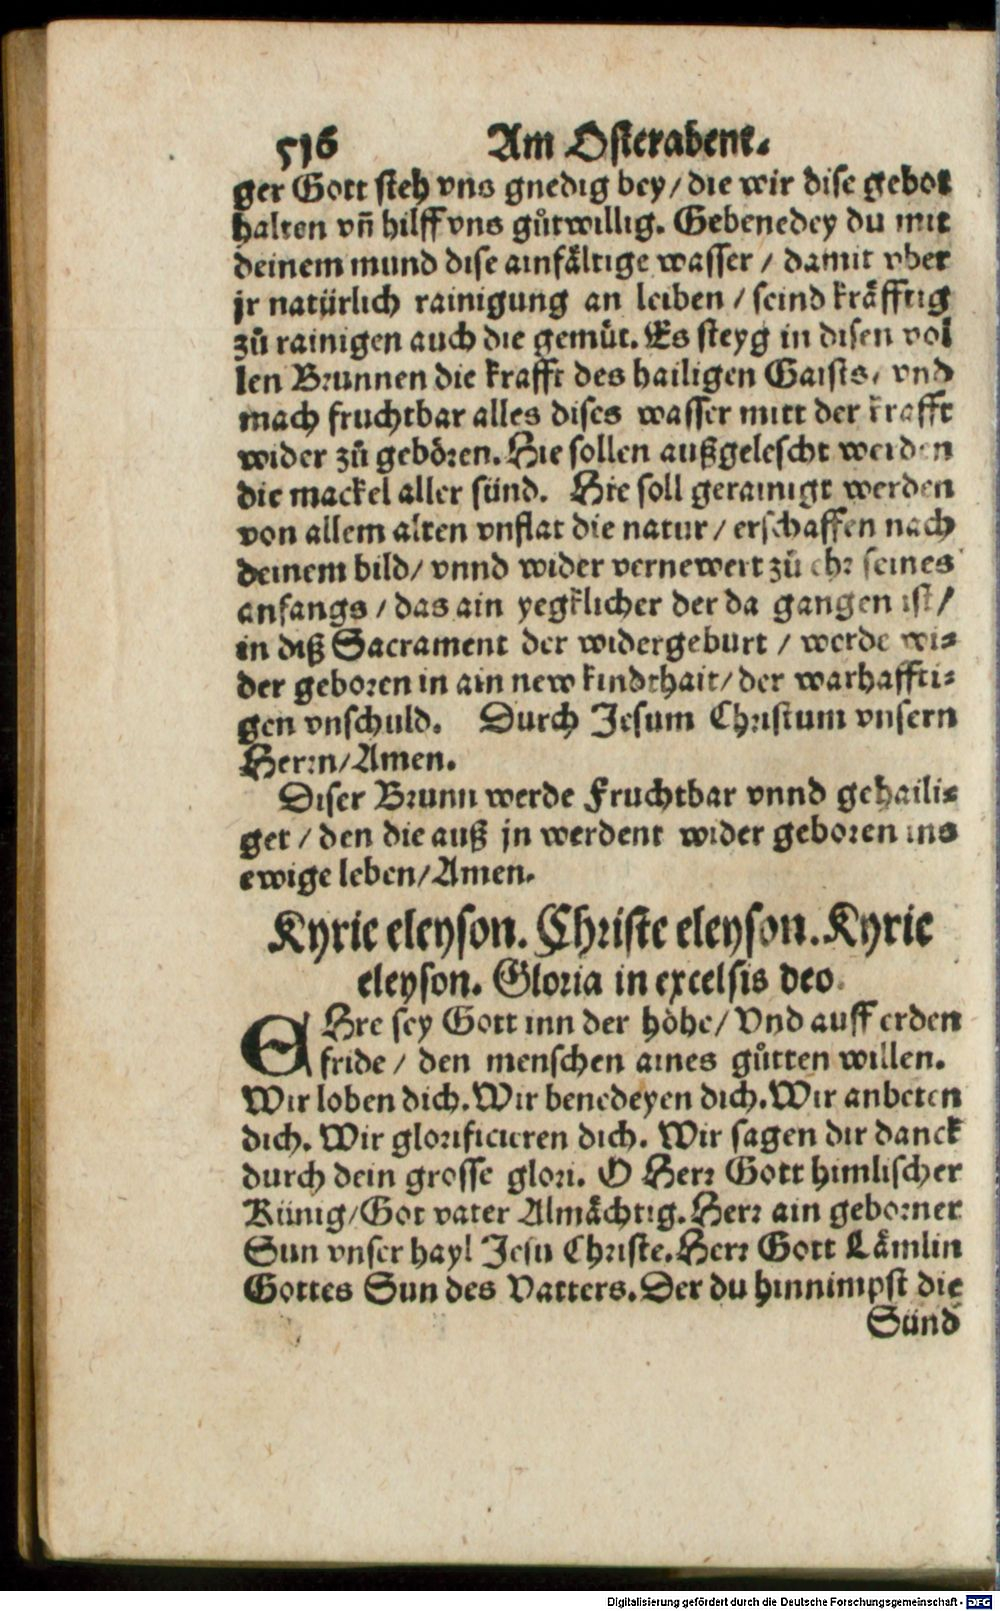 516 Am Osterabent.
ger Gott steh vns gnedig bey / die wir dise gebot
halten vñ hilff vns gůtwillig. Gebenedey du mit
deinem mund dise ainfältige wasser / damit vber
jr natürlich rainigung an leiben / seind kräfftig
zů rainigen auch die gemüt. Es steyg in disen vol
len Brunnen die krafft des hailigen Gaists / vnd
mach fruchtbar alles dises wasser mitt der krafft
wider zů gebören. Hie sollen außgelescht werden
die mackel aller sünd. Hie soll gerainigt werden
von allem alten vnflat die natur / erschaffen nach
deinem bild / vnnd wider vernewert zů ehr seines
anfangs / das ain yegklicher der da gangen ist /
in diß Sacrament der widergeburt / werde wi-
der geboren in ain new kindthait / der warhaffti-
gen vnschuld. Durch Jesum Christum vnsern
Herrn / Amen.
Diser Brunn werde fruchtbar vnnd gehaili-
get / den die auß jn werdent wider geboren ins
ewige leben / Amen.
Kyrie eleyson. Christe eleyson. Kyrie
eleyson. Gloria in excelsis deo.
EHre sey Gott inn der höhe / Vnd auff erden
fride / den menschen aines gůtten willen.
Wir loben dich. Wir benedeyen dich. Wir anbeten
dich. Wir glorificieren dich. Wir sagen dir danck
durch dein grosse glori. O Herr Gott himlischer
Künig / Got vater Almächtig. Herr ain geborner
Sun vnser hayl Jesu Christe. Herr Gott Lämlin
Gottes Sun des Vatters. Der du hinnimpst die
Sünd
Digitalisierung gefördert durch die Deutsche Forschungsgemeinschaft - DFG